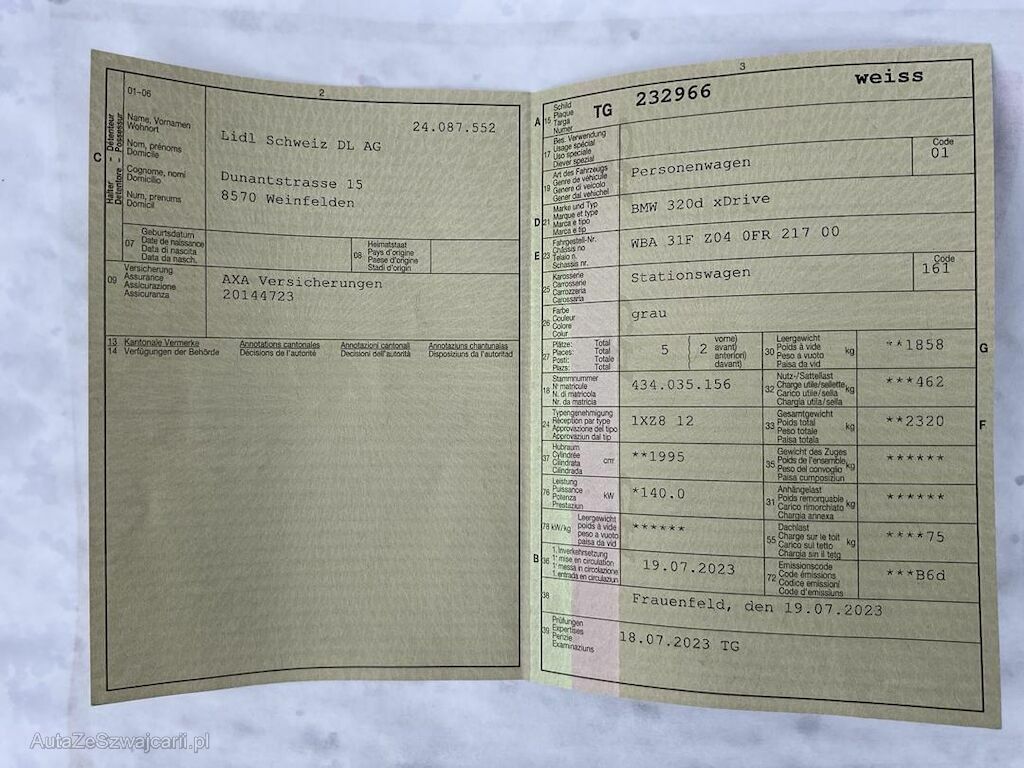 2
01-06
Halter Détenteur
Detentore Possessur
C
Name, Vornamen
Wohnort
Nom, prénoms
Domicile
Cognome, nomi
Domicilio
Num, prenums
Domicil
24.087.552
Lidl Schweiz DL AG
Dunantstrasse 15
8570 Weinfelden
07
Geburtsdatum
Date de naissance
Data di nascita
Data da nasch.
08
Heimatstaat
Pays d'origine
Paese d'origine
Stadi d'origin
09
Versicherung
Assurance
Assicurazione
Assicuranza
AXA Versicherungen
20144723
13 Kantonale Vermerke Annotations cantonales Annotazioni cantonali Annotaziuns chantunalas
14 Verfügungen der Behörde Décisions de l'autorité Decisioni dell'autorità Disposiziuns da l'autoritad
3
A 15
Schild
Plaque
Targa
Numer
TG 232966 weiss
17
Bes. Verwendung
Usage spécial
Uso speciale
Diever spezial
19
Art des Fahrzeugs
Genre de véhicule
Genere di veicolo
Gener dal vehichel
Personenwagen
Code
01
D 21
Marke und Typ
Marque et type
Marca e tipo
Marca e tip
BMW 320d xDrive
E 23
Fahrgestell-Nr.
Châssis no
Telaio n.
Schassis nr.
WBA 31F Z04 0FR 217 00
25
Karosserie
Carrosserie
Carrozzeria
Carossaria
Stationswagen
Code
161
26
Farbe
Couleur
Colore
Colur
grau
27
Plätze: Total
Places: Total
Posti: Totale
Plazs: Total
5 ( 2
vorne)
avant)
anteriori)
davant)
30
Leergewicht
Poids à vide
Peso a vuoto
Paisa da vid
kg
**1858
G
18
Stammnummer
N° matricule
N. di matricola
Nr. da matricla
434.035.156
32
Nutz-/Sattellast
Charge utile/sellette
Carico utile/sella
Chargia utila/sella
kg
***462
24
Typengenehmigung
Réception par type
Approvazione del tipo
Approvaziun dal tip
1XZ8 12
33
Gesamtgewicht
Poids total
Peso totale
Paisa totala
kg
**2320
F
37
Hubraum
Cylindrée
Cilindrata
Cilindrada
cm³
**1995
35
Gewicht des Zuges
Poids de l'ensemble
Peso del convoglio
Paisa cumposiziun
kg
******
76
Leistung
Puissance
Potenza
Prestaziun
kW
*140.0
31
Anhängelast
Poids remorquable
Carico rimorchiato
Chargia annexa
kg
******
78 kW/kg
Leergewicht
poids à vide
peso a vuoto
paisa da vid
******
55
Dachlast
Charge sur le toit
Carico sul tetto
Chargia sin il tetg
kg
****75
B 36
1. Inverkehrsetzung
1re mise en circulation
1a messa in circolazione
1. entrada en circulaziun
19.07.2023
72
Emissionscode
Code émissions
Codice emissioni
Code d'emissiuns
***B6d
38
Frauenfeld, den 19.07.2023
39
Prüfungen
Expertises
Perizie
Examinaziuns
18.07.2023 TG
AutaZeSzwajcarii.pl